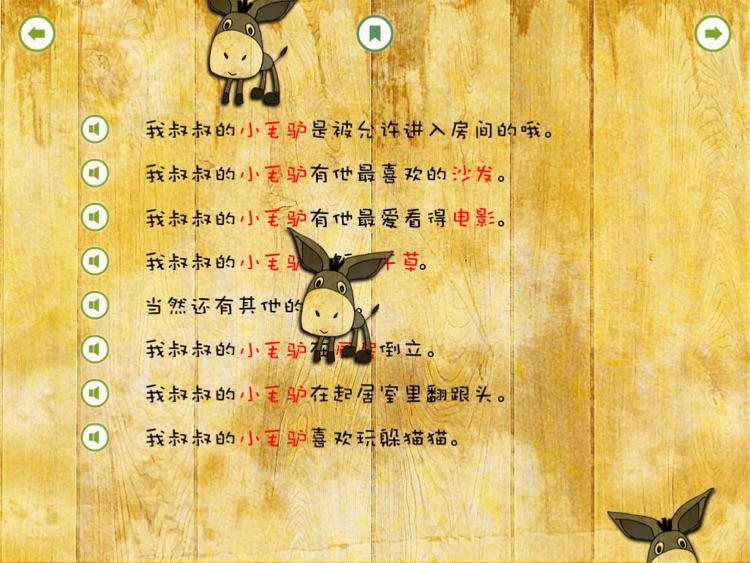 我叔叔的小毛驴是被允许进入房间的哦。
我叔叔的小毛驴有他最喜欢的沙发。
我叔叔的小毛驴有他最爱看得电影。
我叔叔的小毛驴草。
当然还有其他的
我叔叔的小毛驴在倒立。
我叔叔的小毛驴在起居室里翻跟头。
我叔叔的小毛驴喜欢玩躲猫猫。